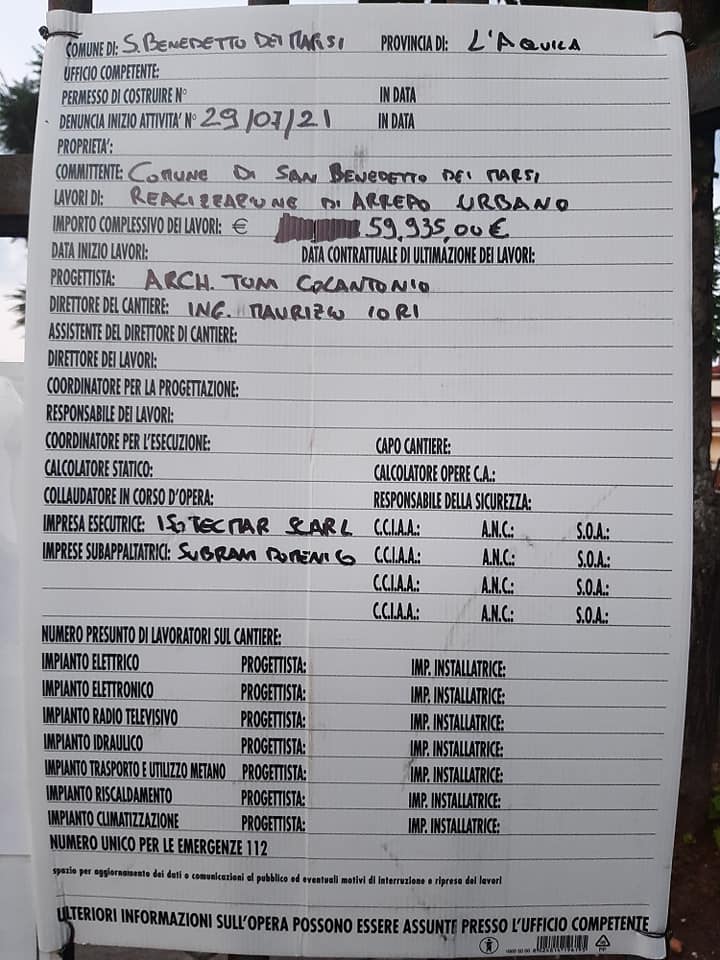 COMUNE DI: S. BENEDETTO DEI MARSI PROVINCIA DI: L'AQUILA
UFFICIO COMPETENTE:
PERMESSO DI COSTRUIRE N° IN DATA
DENUNCIA INIZIO ATTIVITA' N° 29/07/21 IN DATA
PROPRIETA':
COMMITTENTE: COMUNE DI SAN BENEDETTO DEI MARSI
LAVORI DI: REALIZZAZIONE DI ARREDO URBANO
IMPORTO COMPLESSIVO DEI LAVORI: € 59,935,00 €
DATA INIZIO LAVORI: DATA CONTRATTUALE DI ULTIMAZIONE DEI LAVORI:
PROGETTISTA: ARCH. TOM COLANTONIO
DIRETTORE DEL CANTIERE: ING. MAURIZIO IORI
ASSISTENTE DEL DIRETTORE DI CANTIERE:
DIRETTORE DEI LAVORI:
COORDINATORE PER LA PROGETTAZIONE:
RESPONSABILE DEI LAVORI:
COORDINATORE PER L'ESECUZIONE: CAPO CANTIERE:
CALCOLATORE STATICO: CALCOLATORE OPERE C.A.:
COLLAUDATORE IN CORSO D'OPERA: RESPONSABILE DELLA SICUREZZA:
IMPRESA ESECUTRICE: SCARL C.C.I.A.A.: A.N.C.: S.O.A.:
IMPRESE SUBAPPALTATRICI: C.C.I.A.A.: A.N.C.: S.O.A.:
C.C.I.A.A.: A.N.C.: S.O.A.:
C.C.I.A.A.: A.N.C.: S.O.A.:
NUMERO PRESUNTO DI LAVORATORI SUL CANTIERE:
IMPIANTO ELETTRICO PROGETTISTA: IMP. INSTALLATRICE:
IMPIANTO ELETTRONICO PROGETTISTA: IMP. INSTALLATRICE:
IMPIANTO RADIO TELEVISIVO PROGETTISTA: IMP. INSTALLATRICE:
IMPIANTO IDRAULICO PROGETTISTA: IMP. INSTALLATRICE:
IMPIANTO TRASPORTO E UTILIZZO METANO PROGETTISTA: IMP. INSTALLATRICE:
IMPIANTO RISCALDAMENTO PROGETTISTA: IMP. INSTALLATRICE:
IMPIANTO CLIMATIZZAZIONE PROGETTISTA: IMP. INSTALLATRICE:
NUMERO UNICO PER LE EMERGENZE 112
spazio per aggiornamento dei dati o comunicazioni al pubblico ed eventuali motivi di interruzione e ripresa dei lavori
ULTERIORI INFORMAZIONI SULL'OPERA POSSONO ESSERE ASSUNTE PRESSO L'UFFICIO COMPETENTE
PP